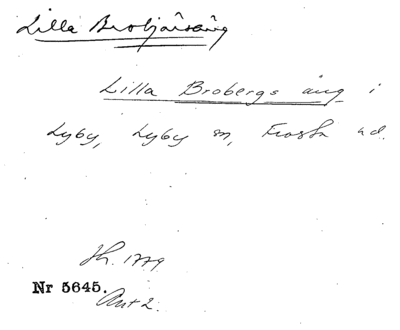 Lilla Brobjärsäng
Lilla Brobergs äng i
Lyby, Lyby sn, Frosta hd.
Sk. 1779
Nr 5645.
Akt 2.